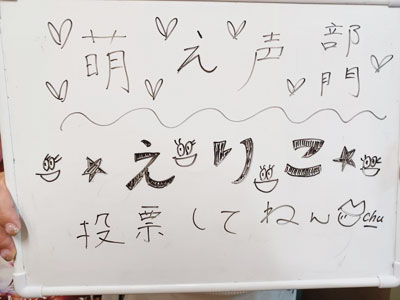 萌え声部門
えりこ
投票してねん chu